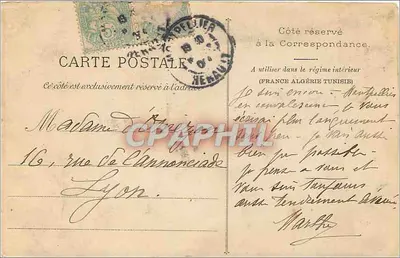 MONTPELLIER
HERAULT
Côté réservé
à la Correspondance
CARTE POSTALE
A utiliser dans le régime intérieur
(FRANCE ALGÉRIE TUNISIE)
Ce côté est exclusivement réservé à l'adresse
Je suis encore à Montpellier
en convalescence je vous
écrirai plus longuement
bien - je vais aussi
bien que possible -
je pense à vous et
vous suis toujours
aussi tendrement
Marthe
Madame
16, rue de l'annonciade
Lyon.
CPAPHIL